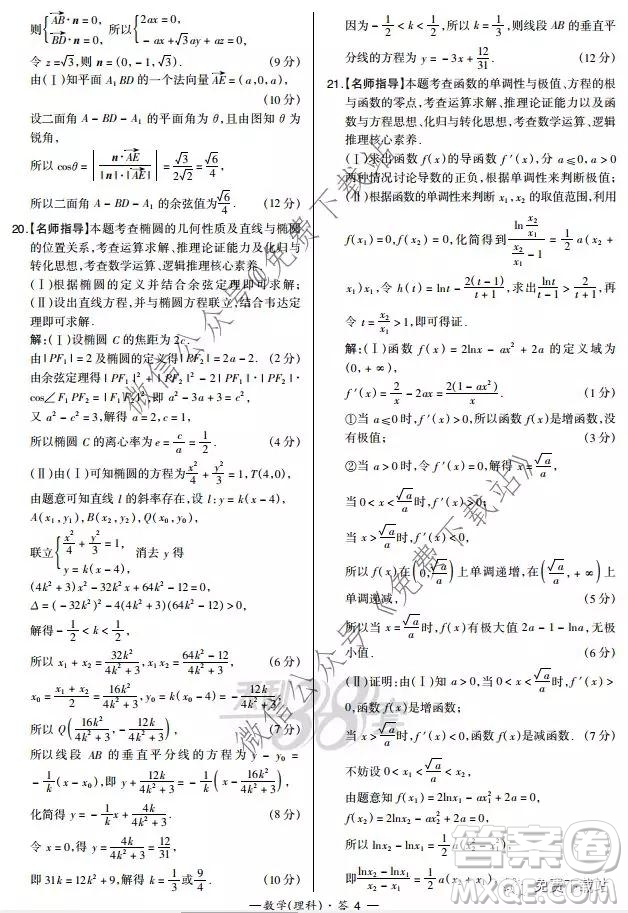 则{AB·n=0, BD·n=0, 所以{2ax=0, -ax+√3ay+az=0,
令 z=√3,则 n=(0,-1,√3). (9分)
由(Ⅰ)知平面 A₁BD 的一个法向量AE=(a,0,a),
(10分)
设二面角 A-BD-A₁ 的平面角为 θ,且由图知 θ 为
锐角,
所以 cosθ=|n·AE/(|n|·|AE|)|=√3/(2√2)=√6/4,
所以二面角 A-BD-A₁ 的余弦值为√6/4. (12分)
20.【名师指导】本题考查椭圆的几何性质及直线与椭圆
的位置关系,考查运算求解、推理论证能力及化归与
转化思想,考查数学运算、逻辑推理核心素养.
(Ⅰ)根据椭圆的定义并结合余弦定理即可求解;
(Ⅱ)设出直线方程,并与椭圆方程联立,结合韦达定
理即可求解.
解:(Ⅰ)设椭圆 C 的焦距为 2c.
由|PF₁|=2及椭圆的定义得|PF₂|=2a-2. (2分)
由余弦定理得|PF₁|²+|PF₂|²-2|PF₁|·|PF₂|·
cos∠F₁PF₂=|F₁F₂|²,即 a²-3a+3=c²,
又 a²-c²=3,解得 a=2,c=1,
所以椭圆 C 的离心率为 e=c/a=1/2. (4分)
(Ⅱ)由(Ⅰ)可知椭圆的方程为x²/4+y²/3=1,T(4,0),
由题意可知直线 l 的斜率存在,设 l:y=k(x-4),
A(x₁,y₁),B(x₂,y₂),Q(x₀,y₀),
联立{x²/4+y²/3=1, y=k(x-4), 消去 y得
(4k²+3)x²-32k²x+64k²-12=0,
Δ=(-32k²)²-4(4k²+3)(64k²-12)>0,
解得-1/2<k<1/2,
所以 x₁+x₂=32k²/(4k²+3),x₁x₂=(64k²-12)/(4k²+3), (6分)
x₀=(x₁+x₂)/2=16k²/(4k²+3),y₀=k(x₀-4)=-12k/(4k²+3),
所以 Q(16k²/(4k²+3),-12k/(4k²+3)), (7分)
所以线段 AB 的垂直平分线的方程为 y-y₀=
-1/k(x-x₀),即 y+12k/(4k²+3)=-1/k(x-16k²/(4k²+3)),
化简得 y=-1/k x+4k/(4k²+3) (8分)
令 x=0,得 y=4k/(4k²+3)=12/31,
即 31k=12k²+9,解得 k=1/3或9/4. (10分)
因为-1/2<k<1/2,所以 k=1/3,则线段 AB 的垂直平
分线的方程为 y=-3x+12/31. (12分)
21.【名师指导】本题考查函数的单调性与极值、方程的根
与函数的零点,考查运算求解、推理论证能力以及函
数与方程思想、化归与转化思想,考查数学运算、逻辑
推理核心素养.
(Ⅰ)求出函数 f(x)的导函数 f′(x),分 a≤0,a>0
两种情况讨论导数的正负,根据单调性来判断极值;
(Ⅱ)根据函数的单调性来判断 x₁,x₂ 的取值范围,利用
f(x₁)=0,f(x₂)=0,化简得到 ln(x₂/x₁)/(x₂/x₁-1)=1/2 a(x₂+
x₁)x₁,令 h(t)=lnt-2(t-1)/(t+1),求出lnt/(t-1)>2/(t+1),再
令 t=x₂/x₁>1,即可得证.
解:(Ⅰ)函数 f(x)=2lnx-ax²+2a 的定义域为
(0,+∞),
f′(x)=2/x-2ax=2(1-ax²)/x. (1分)
①当 a≤0时,f′(x)>0,所以函数 f(x)是增函数,没
有极值; (3分)
②当 a>0时,令 f′(x)=0,解得 x=√a/a,
当 0<x<√a/a时,f′(x)>0;
当 x>√a/a时,f′(x)<0,
所以 f(x)在(0,√a/a)上单调递增,在(√a/a,+∞)上
单调递减, (5分)
所以当 x=√a/a时,f(x)有极大值 2a-1-lna,无极
小值. (6分)
(Ⅱ)证明:由(Ⅰ)知 a>0,当 0<x<√a/a时,f′(x)>
0,函数 f(x)是增函数;
当 x>√a/a时,f′(x)<0,函数 f(x)是减函数. (7分)
不妨设 0<x₁<√a/a<x₂,
由题意知 f(x₁)=2lnx₁-ax₁²+2a=0,
f(x₂)=2lnx₂-ax₂²+2a=0,
所以 lnx₂-lnx₁=1/2 a(x₂²-x₁²),
即(lnx₂-lnx₁)/(x₂-x₁)=1/2
—数学(理科)·答 4—
微信公众号《免费下载站》
微信公众号《免费下载站》
天利38套
免费下载站